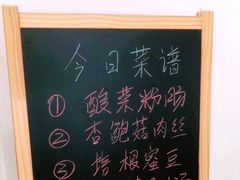 今日菜谱
① 酸菜粉肠
② 杏鲍菇肉丝
③ 培根蜜豆